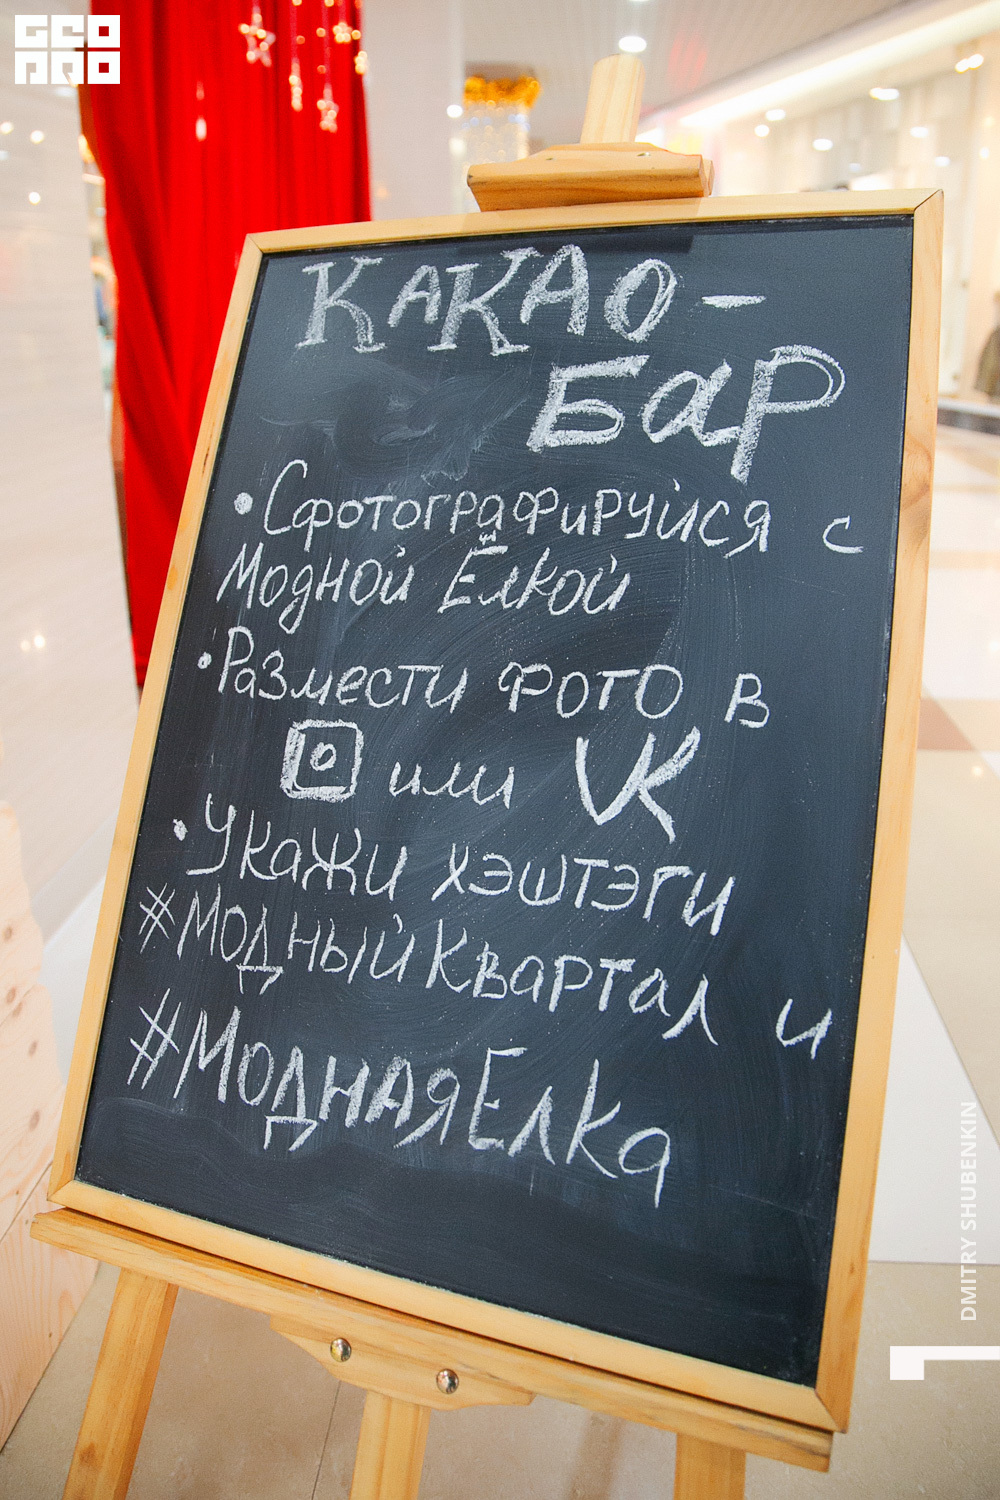 GEO
PRO
КАКАО-
БАР
• Сфотографируйся с
Модной Ёлкой
• Размести фото в
или VK
• Укажи хэштэги
#МодныйКвартал и
#МоднаяЕлка
DMITRY SHUBENKIN